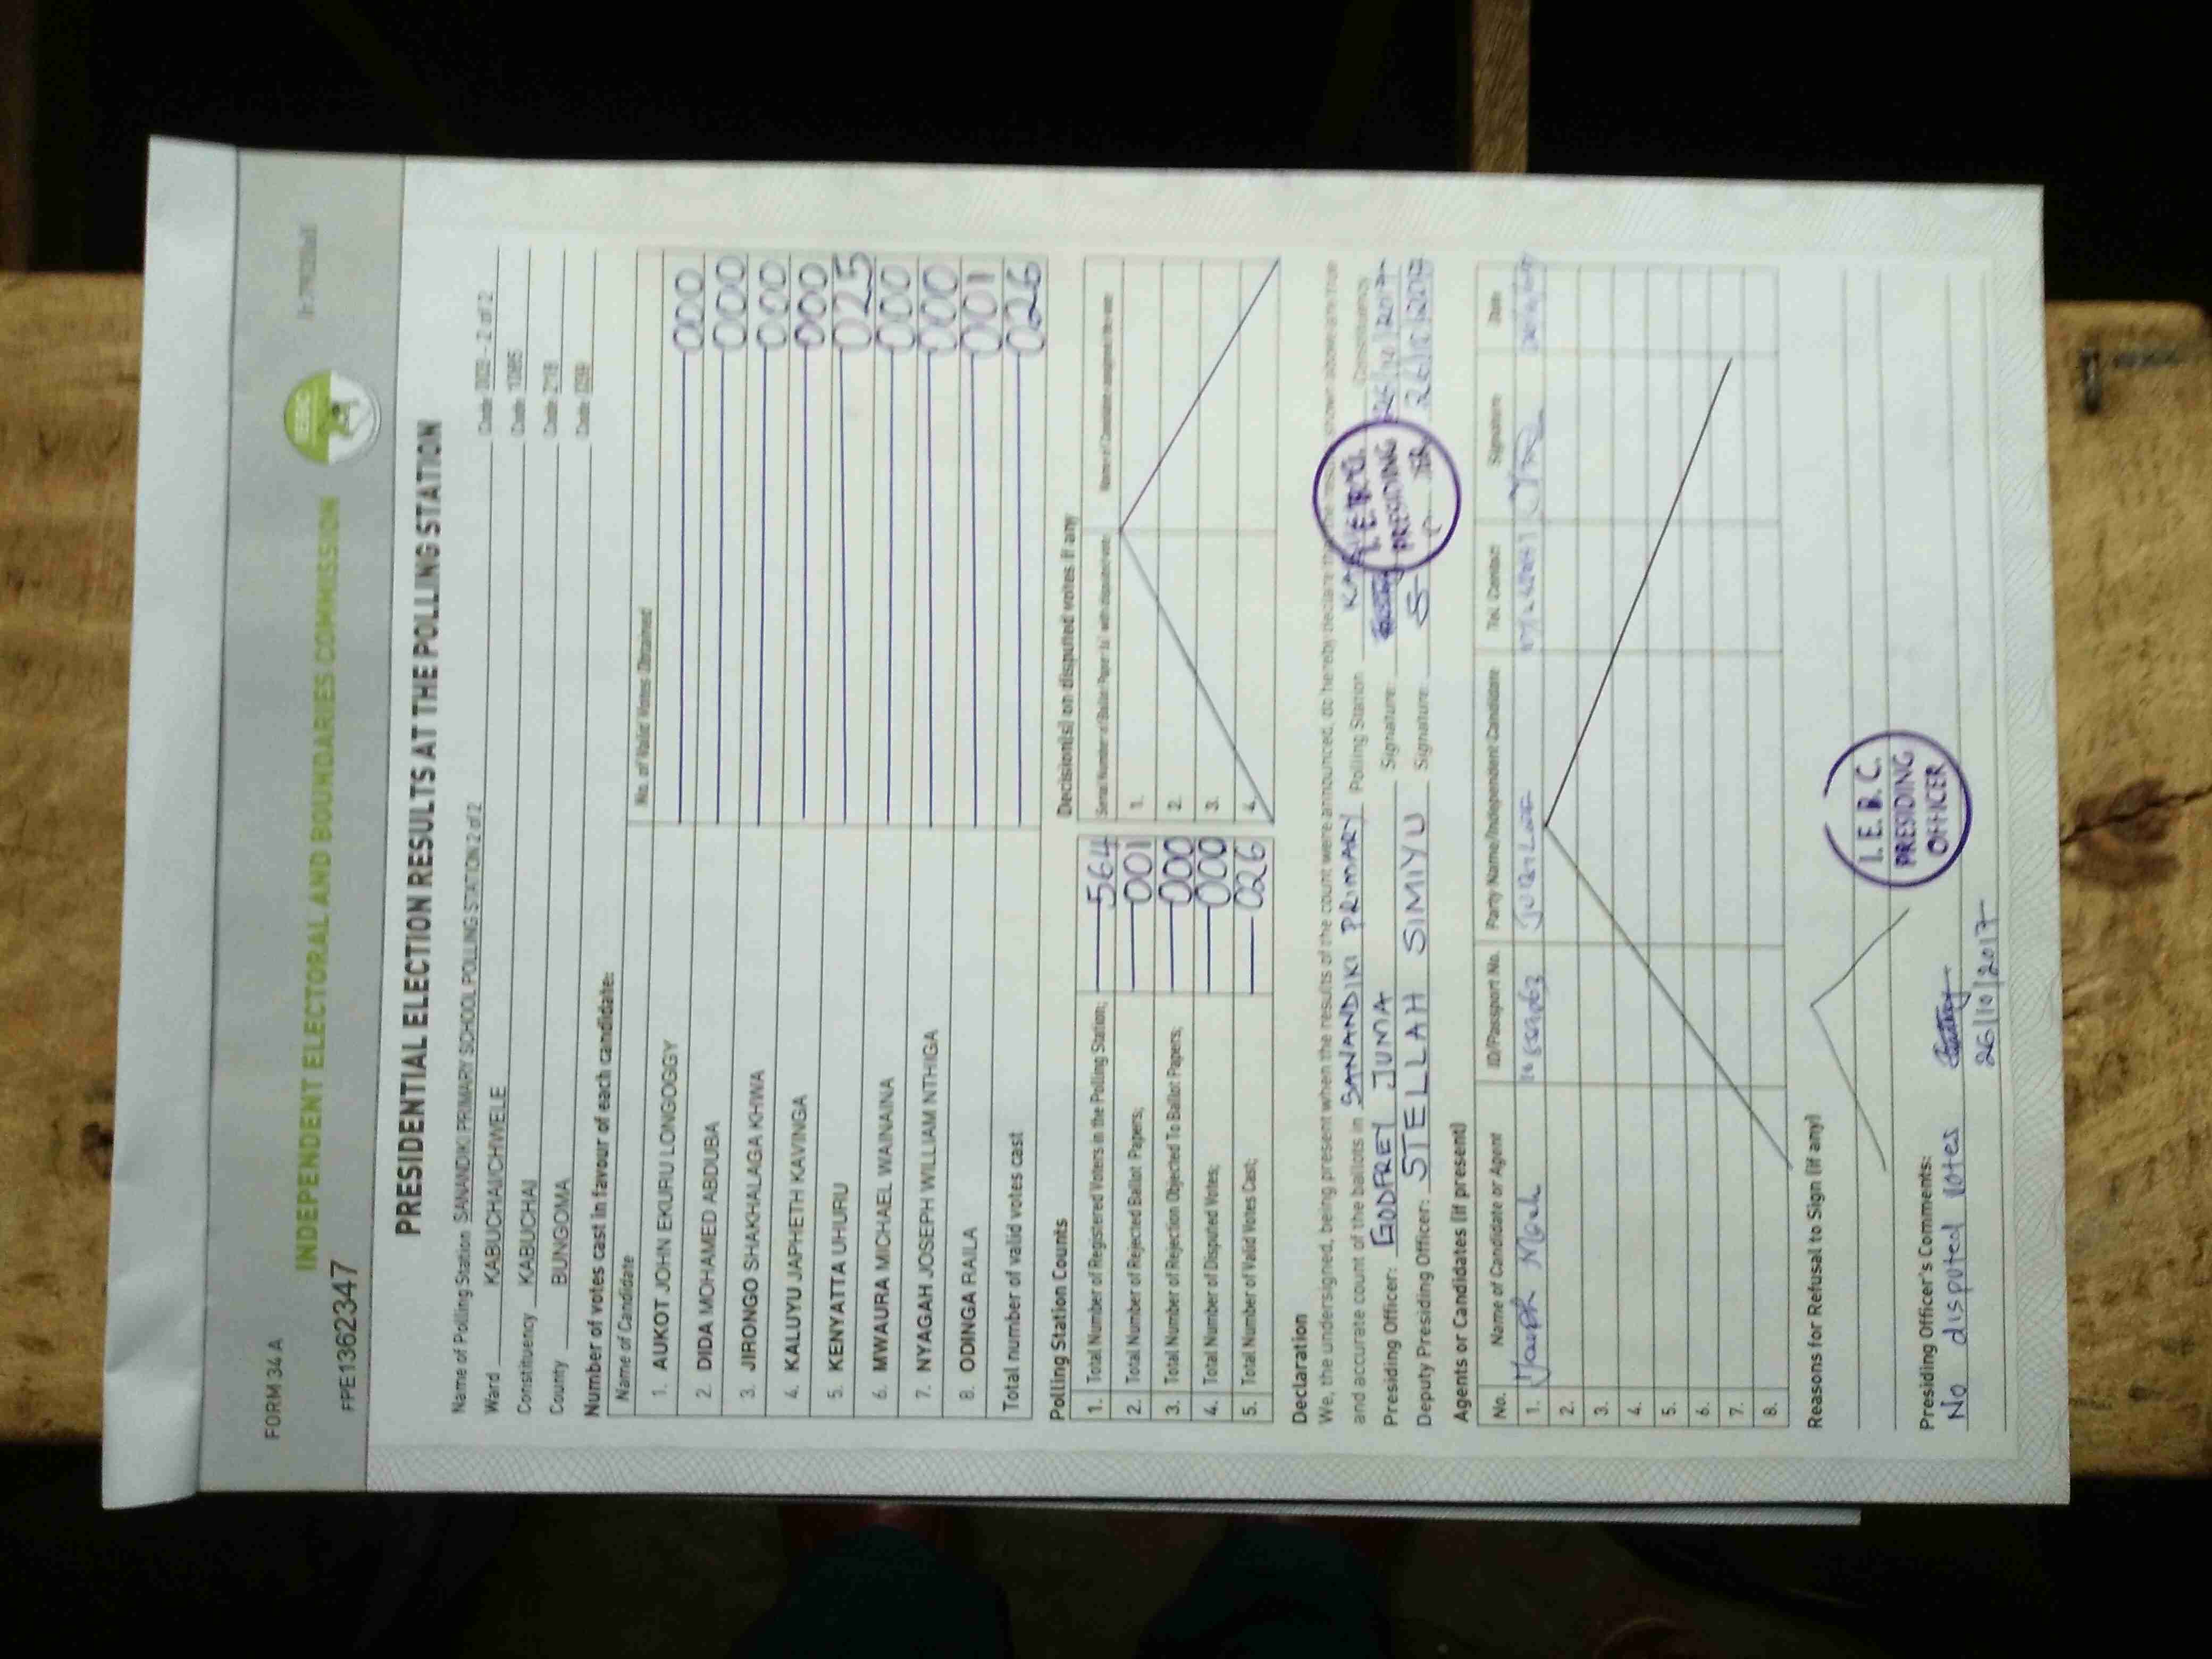 FORM 34 A
INDEPENDENT ELECTORAL AND BOUNDARIES COMMISSION
FPE1362347
PRESIDENTIAL ELECTION RESULTS AT THE POLLING STATION
Name of Polling Station SANANDIKI PRIMARY SCHOOL POLLING STATION 2 of 2 Code 2 of 2
Ward KABUCHAI/CHWELE Code
Constituency KABUCHAI Code
County BUNGOMA Code
Number of votes cast in favour of each candidate:
Name of Candidate No. of Valid Votes Obtained
1. AUKOT JOHN EKURU LONGOGGY 000
2. DIDA MOHAMED ABDUBA 000
3. JIRONGO SHAKHALAGA KHWA 000
4. KALUYU JAPHETH KAVINGA 000
5. KENYATTA UHURU 025
6. MWAURA MICHAEL WAINAINA 000
7. NYAGAH JOSEPH WILLIAM NTHIGA 000
8. ODINGA RAILA 001
Total number of valid votes cast 026
Polling Station Counts
1. Total Number of Registered Voters in the Polling Station; 564
2. Total Number of Rejected Ballot Papers; 001
3. Total Number of Rejection Objected To Ballot Papers; 000
4. Total Number of Disputed Votes; 000
5. Total Number of Valid Votes Cast; 026
Decision(s) on disputed votes if any
Serial Number of Ballot Paper (s) with disputed votes Name of Candidate assigned the vote
1.
2.
3.
4.
Declaration
We, the undersigned, being present when the results of the count were announced, do hereby declare shown above are true
and accurate count of the ballots in SANANDIKI PRIMARY Polling Station Constituency
Presiding Officer: GODFREY JUMA Signature: 26/10/2017
Deputy Presiding Officer: STELLAH SIMIYU Signature: 26/10/2017
I.E.B.C.
PRESIDING
Agents or Candidates (if present)
No. Name of Candidate or Agent ID/Passport No. Party Name/Independent Candidate Tel. Contact Signature Date
1. JUBILEE
2.
3.
4.
5.
6.
7.
8.
Reasons for Refusal to Sign (if any)
I.E.B.C.
PRESIDING
OFFICER
Presiding Officer's Comments:
No disputed votes
26/10/2017